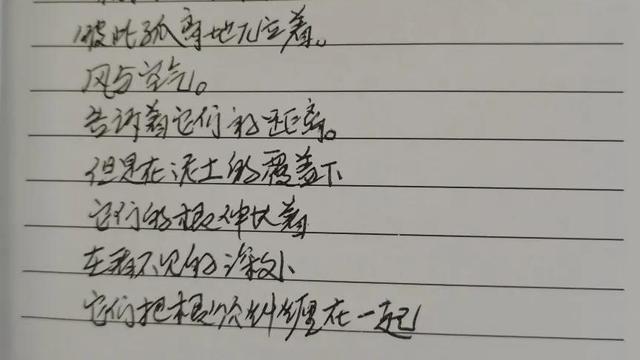 彼此孤离地兀立着。
风与空气。
告诉着它们的距离。
但是在泥土的覆盖下
它们的根伸长着
在看不见的深处
它们把根须纠缠在一起